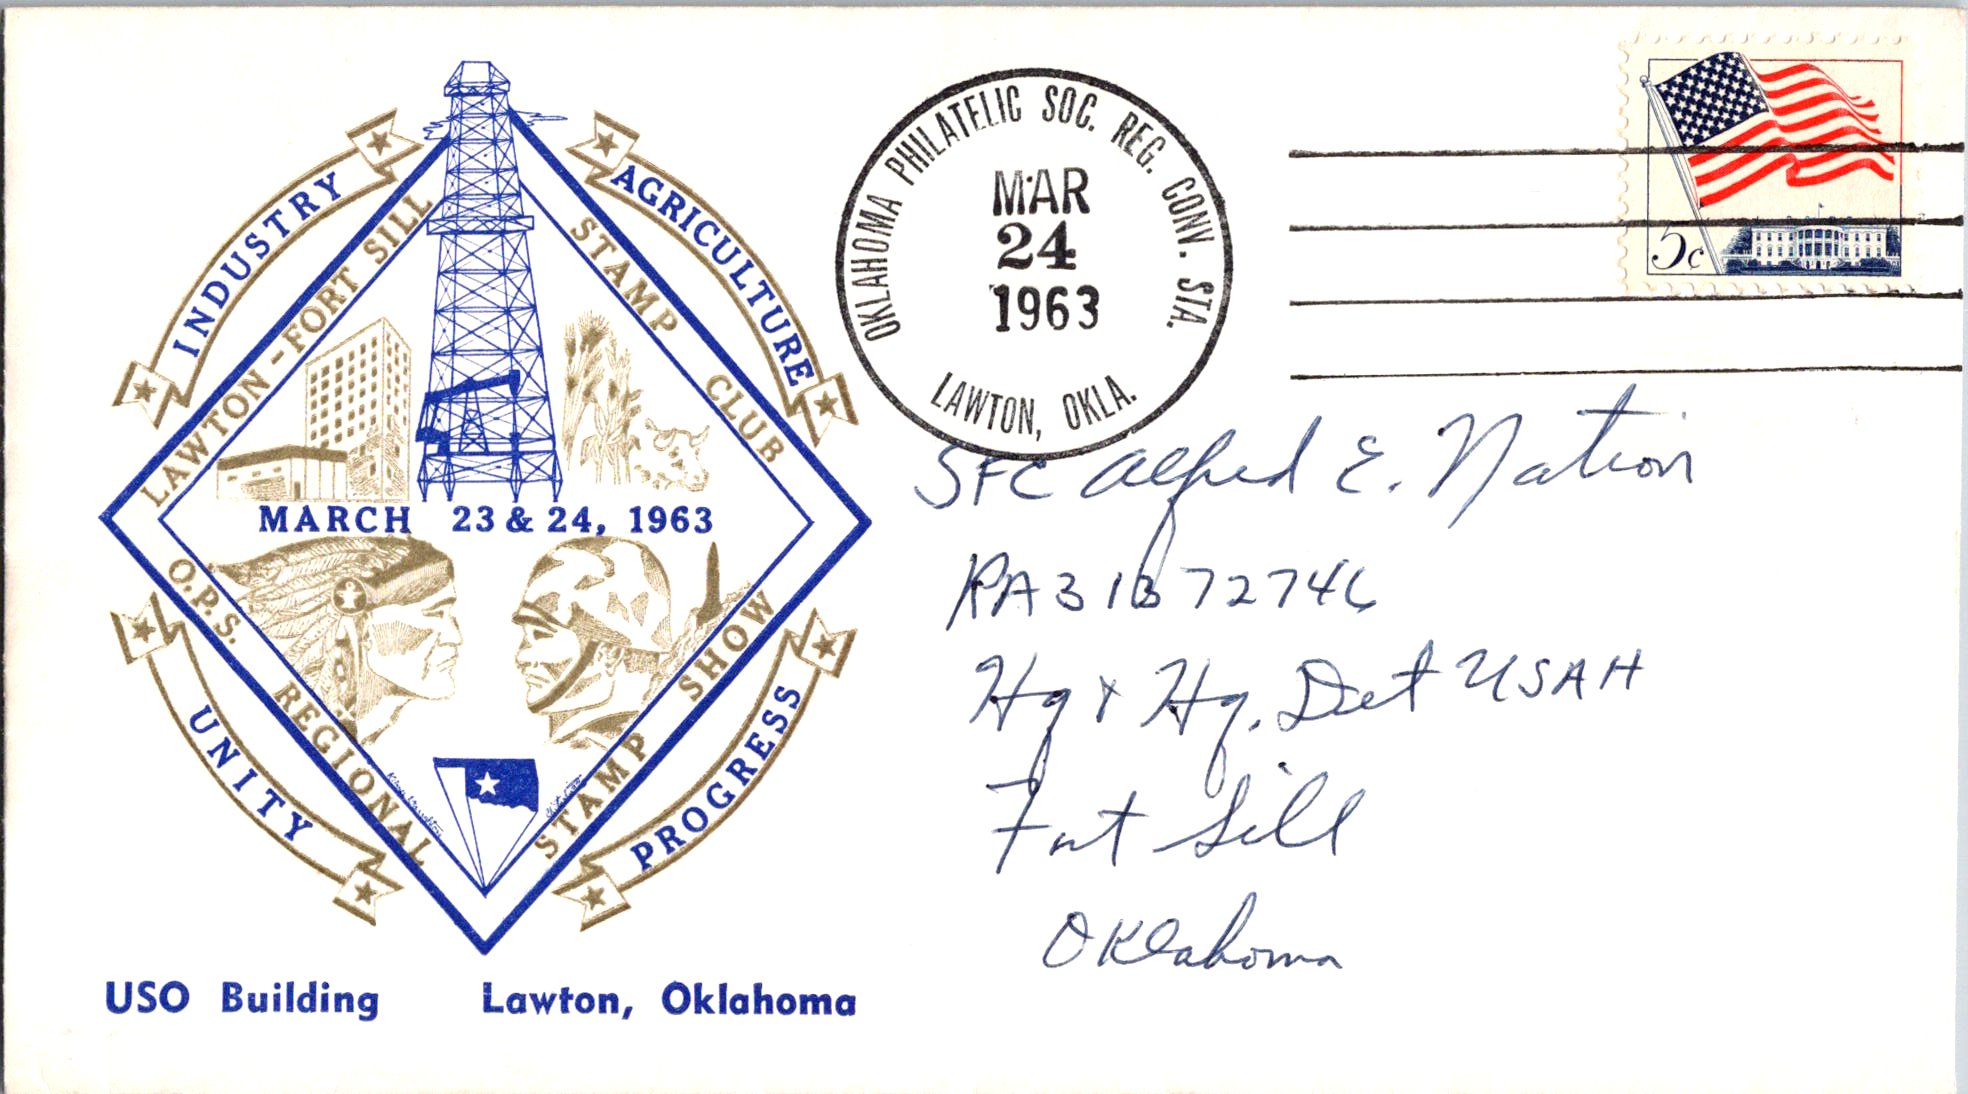 INDUSTRY
AGRICULTURE
LAWTON-FORT SILL STAMP CLUB
MARCH 23 & 24, 1963
O.P.S. REGIONAL STAMP SHOW
UNITY
PROGRESS
USO Building Lawton, Oklahoma
OKLAHOMA PHILATELIC SOC. REG. CONV. STA.
MAR
24
1963
LAWTON, OKLA.
5c
SFC Alfred E. Nation
Hq & Hq. Det USAH
Fort Sill
Oklahoma